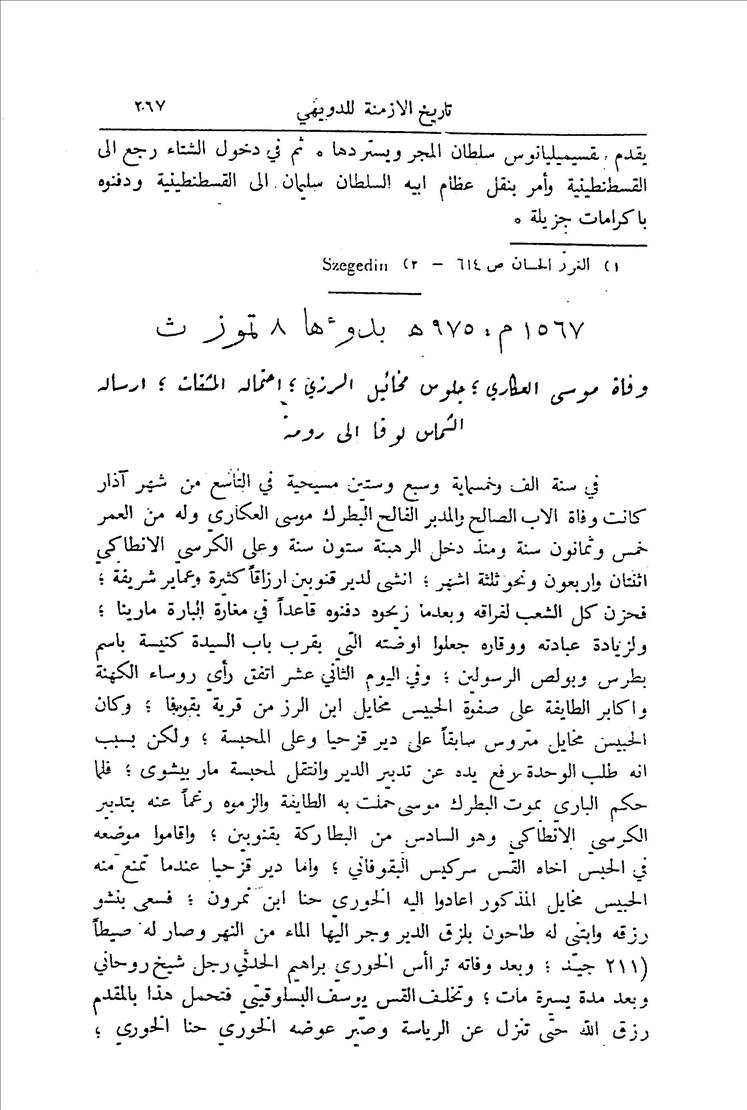 تاريخ الازمنة للدويهي ٢٠٦٧
يقدم مقسيميليانوس سلطان المجر ويستردها ٠ ثم في دخول الشتاء رجع الى
القسطنطينية وأمر بنقل عظام ابيه السلطان سليمان الى القسطنطينية ودفنوه
باكرامات جزيلة ٠
١) الغرر الحسان ص ٦١٤ – ٢) Szegedin
١٥٦٧ م : ٩٧٥ هـ بدوءها ٨ تموز ث
وفاة موسى العكاري ؛ جلوس مخائيل الرزي ؛ احتماله المشقات ؛ ارساله
الشماس لوقا الى رومة
في سنة الف وخمسماية وسبع وستين مسيحية في التاسع من شهر آذار
كانت وفاة الاب الصالح والمدبر الفالح البطرك موسى العكاري وله من العمر
خمس وثمانون سنة ومنذ دخل الرهبنة ستون سنة وعلى الكرسي الانطاكي
اثنتان واربعون ونحو ثلثة اشهر ؛ انشى لدير قنوبين ارزاقاً كثيرة وعماير شريفة ؛
فحزن كل الشعب لفراقه وبعدما زيحوه دفنوه قاعداً في مغارة البارة مارينا ؛
ولزيادة عبادته ووقاره جعلوا اوضته التي يقرب باب السيدة كنيسة باسم
بطرس وبولص الرسولين ؛ وفي اليوم الثاني عشر اتفق رأي روساء الكهنة
واكابر الطايفة على صفوة الحبيس مخايل ابن الرز من قرية بقوفا ؛ وكان
الحبيس مخايل متروس سابقاً على دير قزحيا وعلى المحبسة ؛ ولكن بسبب
انه طلب الوحدة رفع يده عن تدبير الدير وانتقل لمحبسة مار بيشوى ؛ فلما
حكم الباري بموت البطرك موسى حملت به الطايفة والزموه رغماً عنه بتدبير
الكرسي الانطاكي وهو السادس من البطاركة بقنوبين ؛ واقاموا موضعه
في الحبس اخاه القس سركيس البقوفاني ؛ واما دير قزحيا عندما تمنع منه
الحبيس مخايل المذكور اعادوا اليه الخوري حنا ابن نمرون ؛ فسعى بنشو
رزقه وابتنى له طاحون بلزق الدير وجر اليها الماء من النهر وصار له صيطاً
(٢١١ جيّد ؛ وبعد وفاته تراأس الخوري براهيم الحدثي رجل شيخ روحاني
وبعد مدة يسرة مات ؛ وتخلف القس يوسف البسلوقيتي فتحمل هذا بالمقدم
رزق الله حتى تنزل عن الرياسة وصبّر عوضه الخوري حنا الخوري ؛